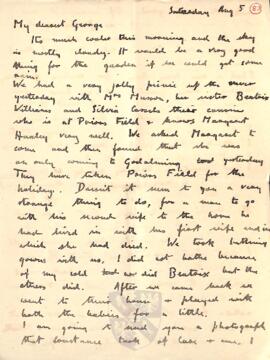 Saturday Aug 5 83
My dearest George
It's much cooler this morning and the sky
is mostly cloudy. It would be a very good
thing for the garden if we could get some
rain.
We had a very jolly picnic up the river
yesterday with Mrs Musson, her sister Beatrix
Williams and Silvia their cousin
who is at Poison Field & knows Margaret
Huxley very well. We asked Margaret to
come and then found that she was
only coming to Godalming yesterday
They have taken Poison Field for the
holiday. Doesn't it seem to you a very
strange thing to do, for a man to go
with his second wife to the home he
had lived in with his first wife and in
which she had died. We took bathing
gowns with us, I did not bathe because
of my cold did Beatrix but the
others did. After we came back we
went to their house & played with
both the babies for a little.
I am going to send you a photograph
that Constance took of Clare & me. I